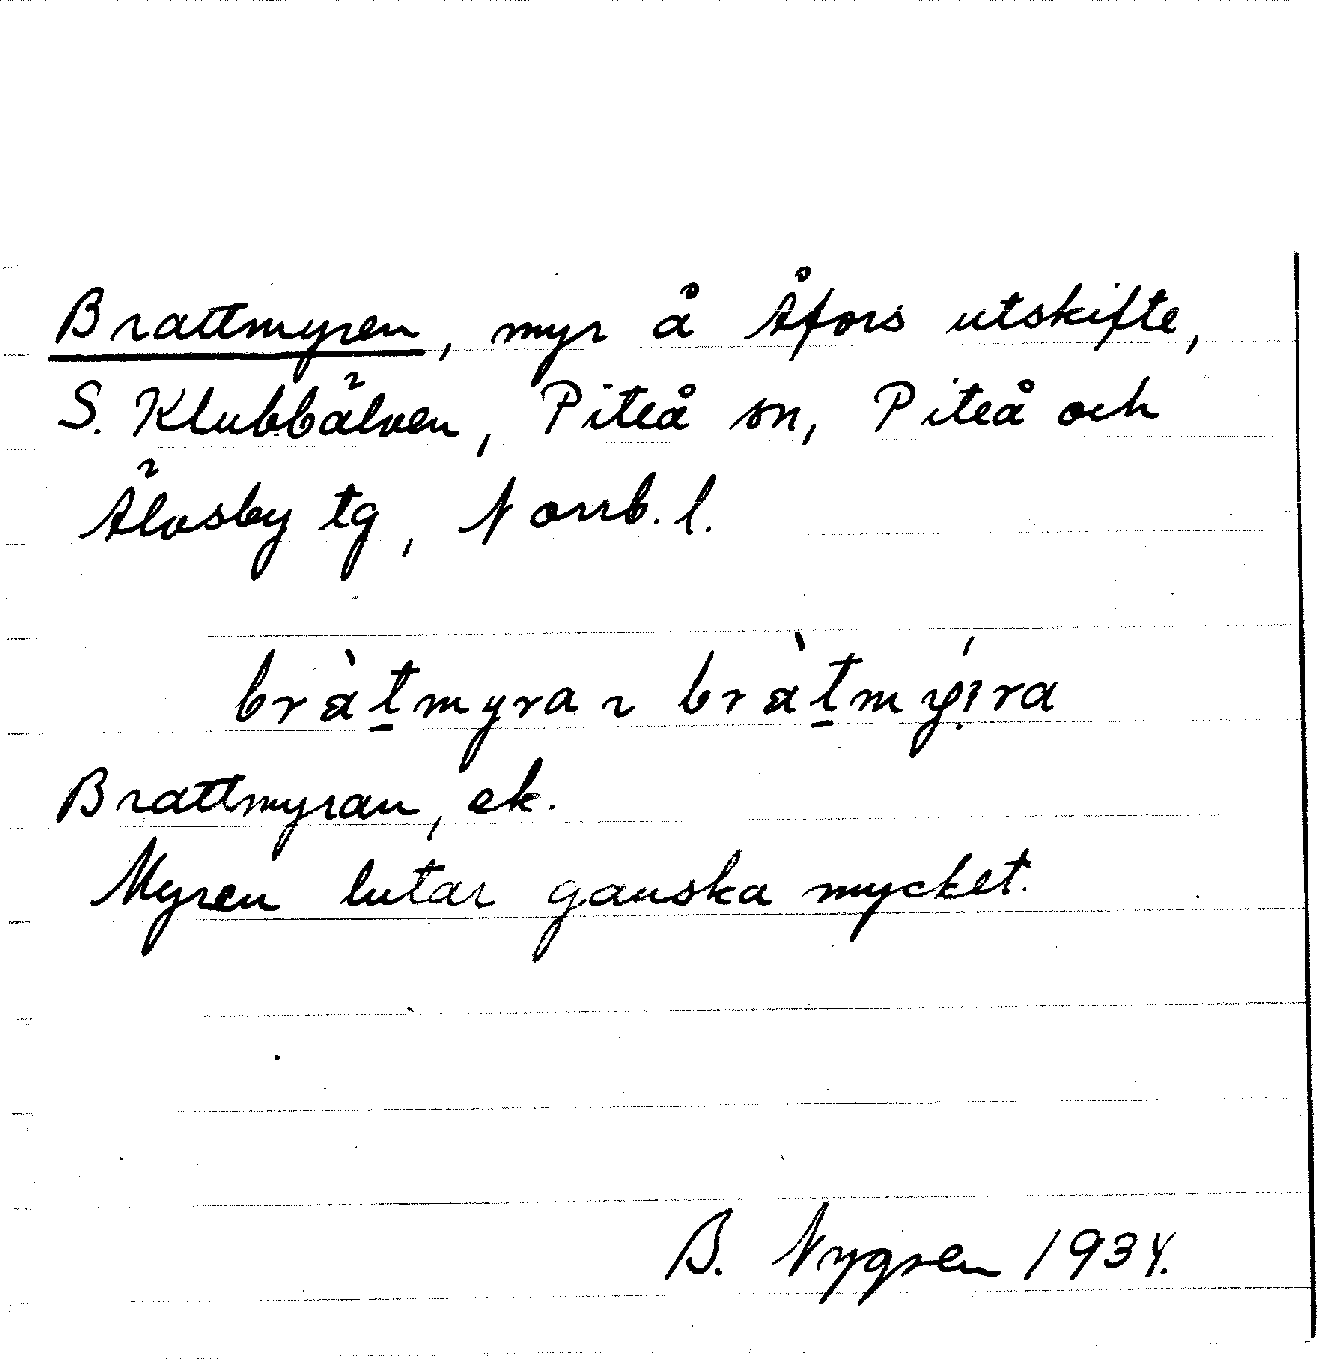 Brattmyren, myr å Åfors utskifte,
S. Klubbälven, Piteå sn, Piteå och
Älvsby tg, Norrb. l.
bràt̠myra ~ bràt̠mýi̥ra
Brattmyran, ek.
Myren lutar ganska mycket.
B. Nygren 1934.